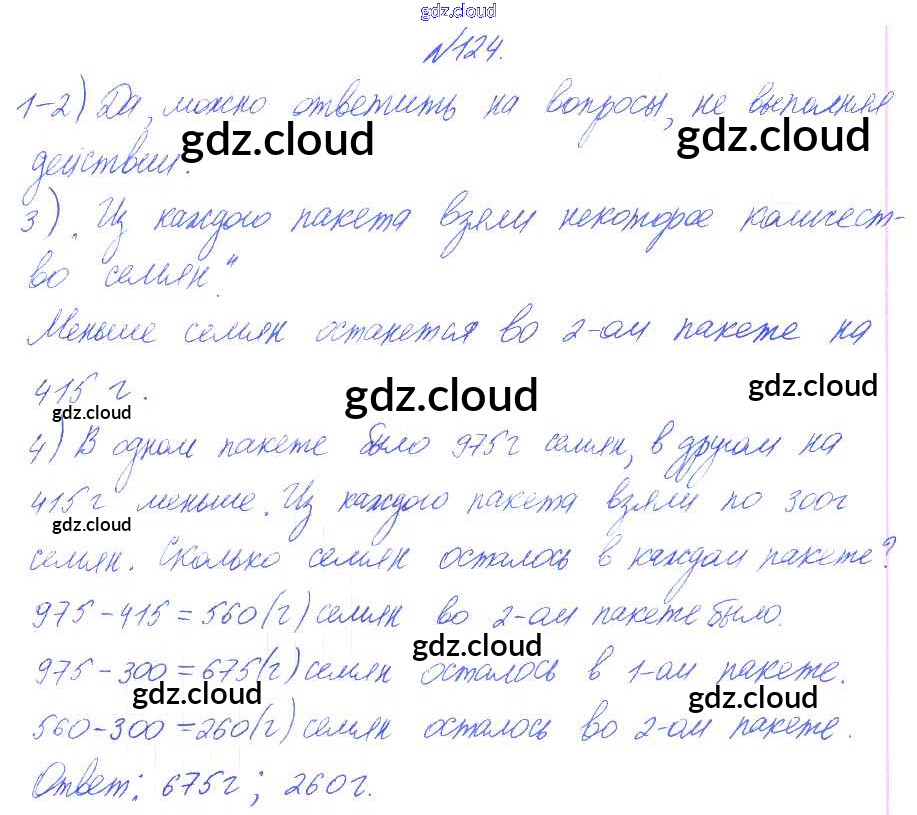 gdz.cloud
№124.
1-2) Да, можно ответить на вопросы, не выполняя
gdz.cloud gdz.cloud
действий.
3) „Из каждого пакета взяли некоторое количест-
во семян“.
Меньше семян останется во 2-ом пакете на
415 г.
gdz.cloud gdz.cloud gdz.cloud
4) В одном пакете было 975 г семян, в другом на
415 г меньше. Из каждого пакета взяли по 300 г
gdz.cloud
семян. Сколько семян осталось в каждом пакете?
975 - 415 = 560 (г) семян во 2-ом пакете было.
gdz.cloud
975 - 300 = 675 (г) семян осталось в 1-ом пакете.
gdz.cloud gdz.cloud
560 - 300 = 260 (г) семян осталось во 2-ом пакете.
Ответ: 675 г; 260 г.